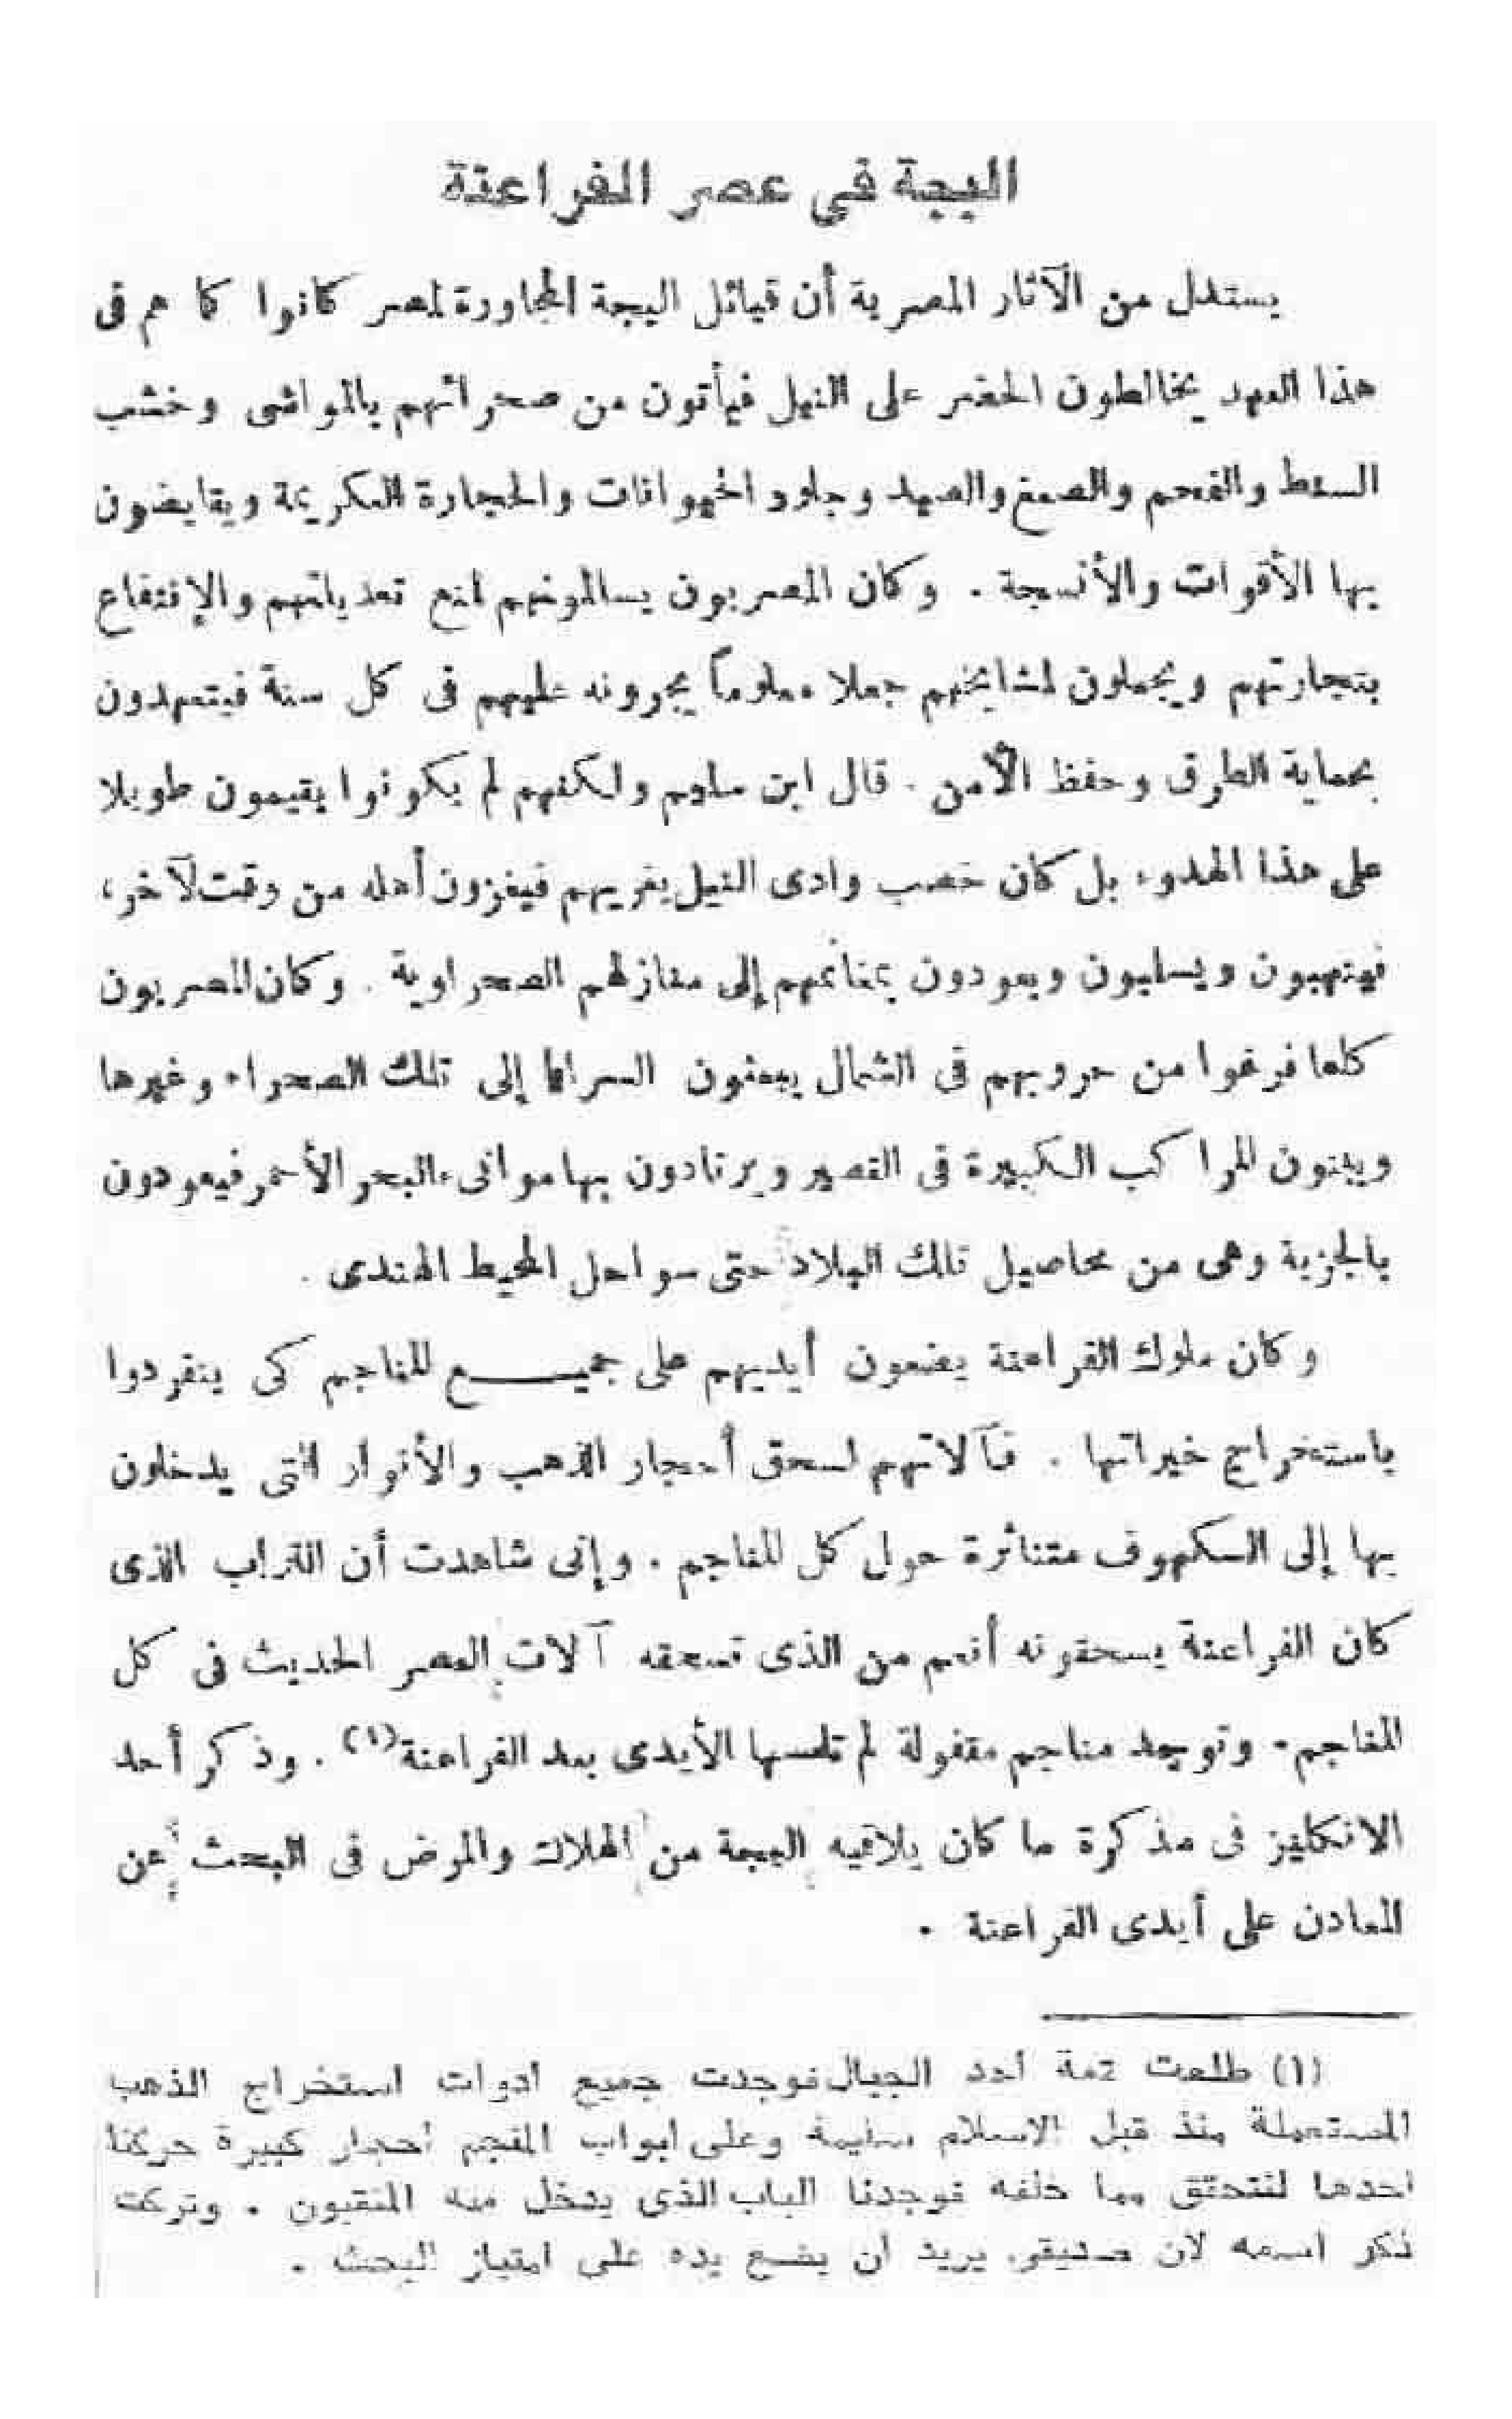 البجة في عصر الفراعنة
يستدل من الآثار المصرية أن قبائل البجة المجاورة لمصر كانوا كما هم فى
هذا العهد يخالطون الحضر على النيل فيأتون من صحرائهم بالمواشى وخشب
السنط والفحم والصمغ والصيد وجلود الحيوانات والحجارة الكريمة ويقايضون
بها الأقوات والأنسجة . وكان المصريون يسالمونهم لمنع تعدياتهم والإنتفاع
بتجارتهم ويجعلون لمشايخهم جعلا معلوماً يجرونه عليهم فى كل سنة فيتعهدون
بحماية الطرق وحفظ الأمن . قال ابن سليم ولكنهم لم يكونوا يقيمون طويلا
على هذا الهدوء بل كان خصب وادى النيل يغريهم فيغزون أهله من وقت لآخر ،
فينهبون ويسلبون ويعودون بمغانمهم إلى منازلهم الصحراوية . وكان المصريون
كلما فرغوا من حروبهم فى الشمال يبعثون السرايا إلى تلك الصحراء وغيرها
ويبنون المراكب الكبيرة فى القصير ويرتادون بها موانىء البحر الأحمر فيعودون
بالجزية وهى من محاصيل تلك البلاد حتى سواحل المحيط الهندى .
وكان ملوك الفراعنة يضعون أيديهم على جميـــع المناجم كى ينفردوا
باستخراج خيراتها . فآلاتهم لسحق أحجار الذهب والأنوار التى يدخلون
بها إلى الكهوف متناثرة حول كل المناجم . وإنى شاهدت أن التراب الذى
كان الفراعنة يسحقونه أنعم من الذى تسحقه آلات العصر الحديث فى كل
المناجم . وتوجد مناجم مقفولة لم تلمسها الأيدى بعد الفراعنة (١) . وذكر أحد
الانكليز فى مذكرة ما كان يلاقيه البجة من الهلاك والمرض فى البحث عن
المعادن على أيدى الفراعنة .
(١) طلعت قمة أحد الجبال فوجدت جميع أدوات استخراج الذهب
المستعملة منذ قبل الاسلام سليمة وعلى أبواب المنجم أحجار كبيرة حركنا
احدها لنتحقق مما خلفه فوجدنا الباب الذى يدخل منه المنقبون . وتركت
ذكر اسمه لان صديقى يريد ان يضع يده على امتياز البحث .